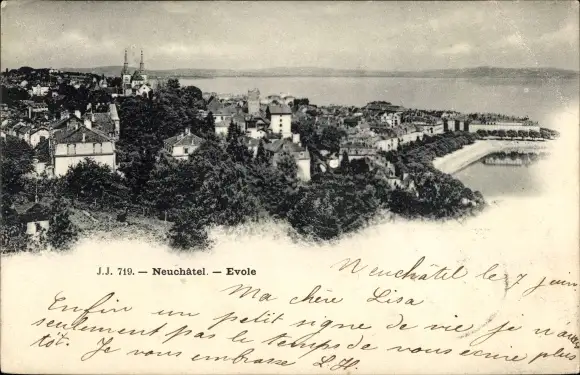 J.J. 719. — Neuchâtel. — Evole
Neuchâtel le 7 juin
Ma chère Lisa
Enfin un petit signe de vie, je n'avais
seulement pas le temps de vous ecrire plus
tôt. Je vous embrasse L.H.